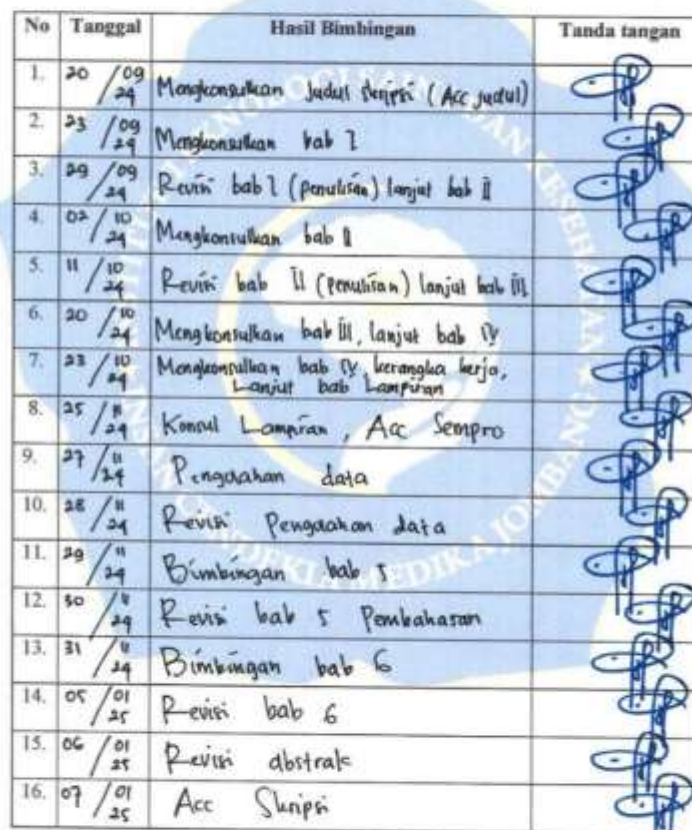 No Tanggal Hasil Bimbingan Tanda tangan
1. 20/09/24 Mengkonsulkan judul skripsi (Acc judul)
2. 23/09/24 Mengkonsulkan bab I
3. 29/09/24 Revisi bab I (penulisan) lanjut bab II
4. 02/10/24 Mengkonsulkan bab II
5. 11/10/24 Revisi bab II (penulisan) lanjut bab III
6. 20/10/24 Mengkonsulkan bab III, lanjut bab IV
7. 23/10/24 Mengkonsulkan bab IV, kerangka kerja,
Lanjut bab Lampiran
8. 25/11/24 Konsul Lampiran, Acc Sempro
9. 27/11/24 Pengolahan data
10. 28/11/24 Revisi Pengolahan data
11. 29/11/24 Bimbingan bab 5
12. 30/11/24 Revisi bab 5 Pembahasan
13. 31/11/24 Bimbingan bab 6
14. 05/01/25 Revisi bab 6
15. 06/01/25 Revisi abstrak
16. 07/01/25 Acc Skripsi